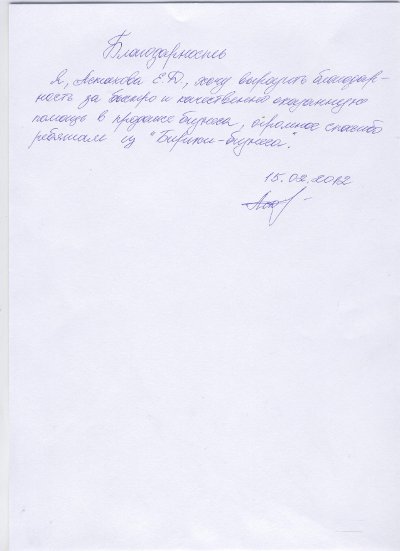 Благодарность
Я, Астахова Е.Д., хочу выразить благодар-
ность за быстро и качественно оказанную
помощь в продаже бизнеса, огромное спасибо
ребятам из "Биржи-бизнеса".
15.02.2012